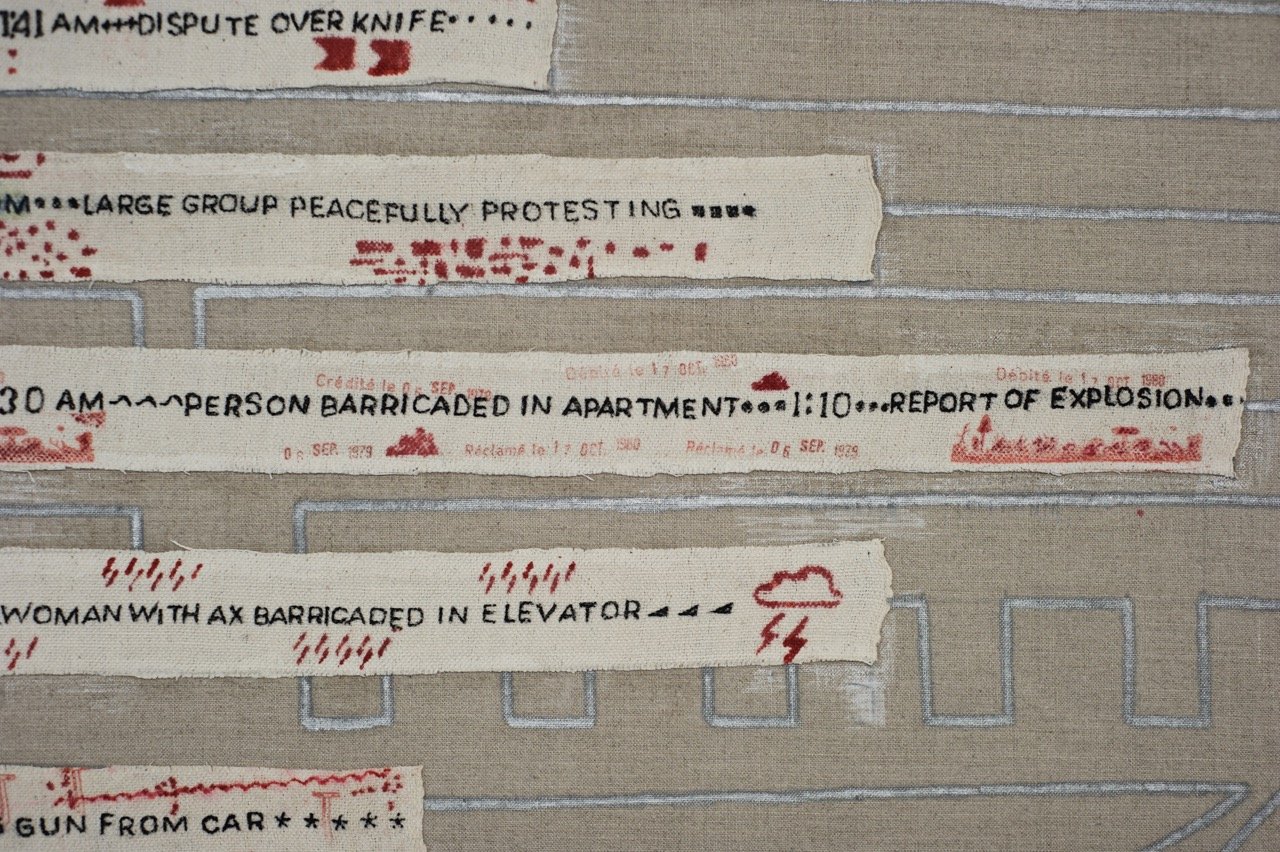 1:41 AM+++DISPUTE OVER KNIFE•••••
M•••LARGE GROUP PEACEFULLY PROTESTING ▪▪▪▪
Crédité le 06 SEP. 1979 Débité le 17 OCT. 1980 Débité le 17 OCT. 1980
30 AM^^^PERSON BARRICADED IN APARTMENT•••1:10•••REPORT OF EXPLOSION•••
06 SEP. 1979 Réclamé le 17 OCT. 1980 Réclamé le 06 SEP. 1979
WOMAN WITH AX BARRICADED IN ELEVATOR◢◢◢
GUN FROM CAR*****